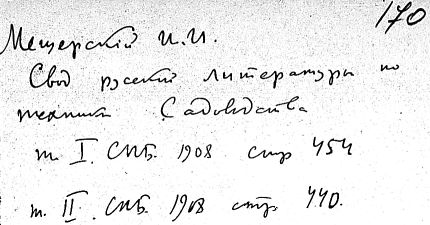 170
Мещерский И.И.
Свод русской литературы по
технике Садоводства
т. I. СПБ. 1908 стр 454
т. II. СПБ. 1908 стр. 440.